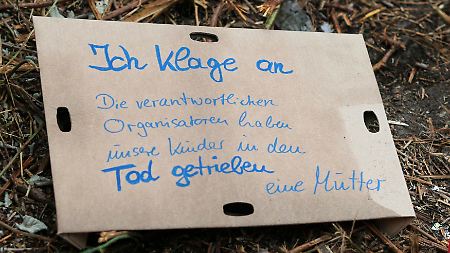 Ich klage an
Die verantwortlichen
Organisatoren haben
unsere Kinder in den
Tod getrieben
eine Mutter